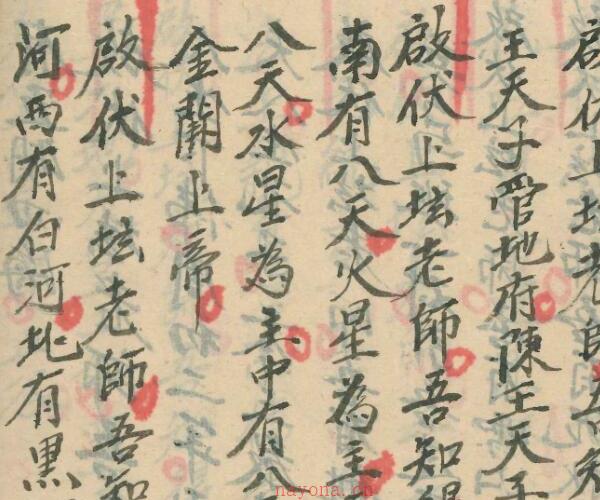 啟伏上坛老師吾知
王天子管地府陳王天子
啟伏上坛老師吾知得
南有八天火星為主
八天水星為主中有八
金闕上帝
啟伏上坛老師吾知
河西有白河北有黑
nayona.cn